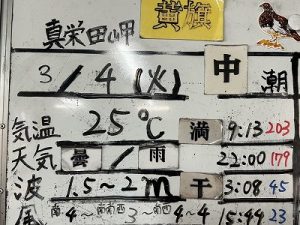 真栄田岬 黄旗
3/4(火) 中潮
気温 25℃ 満 9:13 203
天気 曇/雨 22:00 179
波 1.5~2m 干 3:08 45
風 南4~南南西3~南西4~4 15:44 23